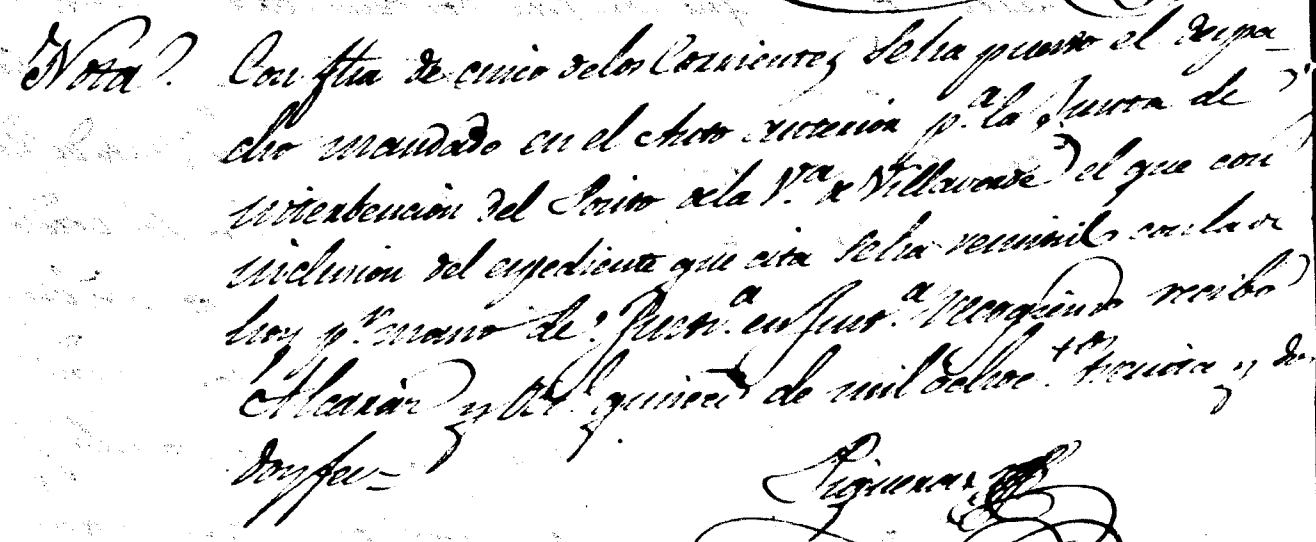 Nota. Con fha de cinco delos Corrientes Seha puesto el despa-
cho mandado en el Auto anterior p.a la Junta de
interbencion del Posito dela V.a de Villaverde el que con
inclusion del espediente que cita Seha remitido con la de
hoy p.r mano de Justi.a en Junt.a recogiendo recibo
Alcaraz y quince de mil ochoc.tos treinta y dos
doy fee=
Figueroa